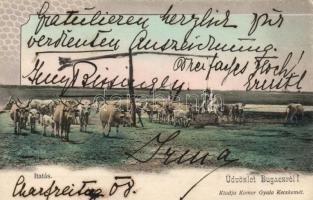 Gratulieren herzlich zur
verdienten Auszeichnung.
Dreifaches Hoch!
Irma
Itatás.
Üdvözlet Bugaczról!
Kiadja Komor Gyula Kecskemét.
Charfreitag 08.